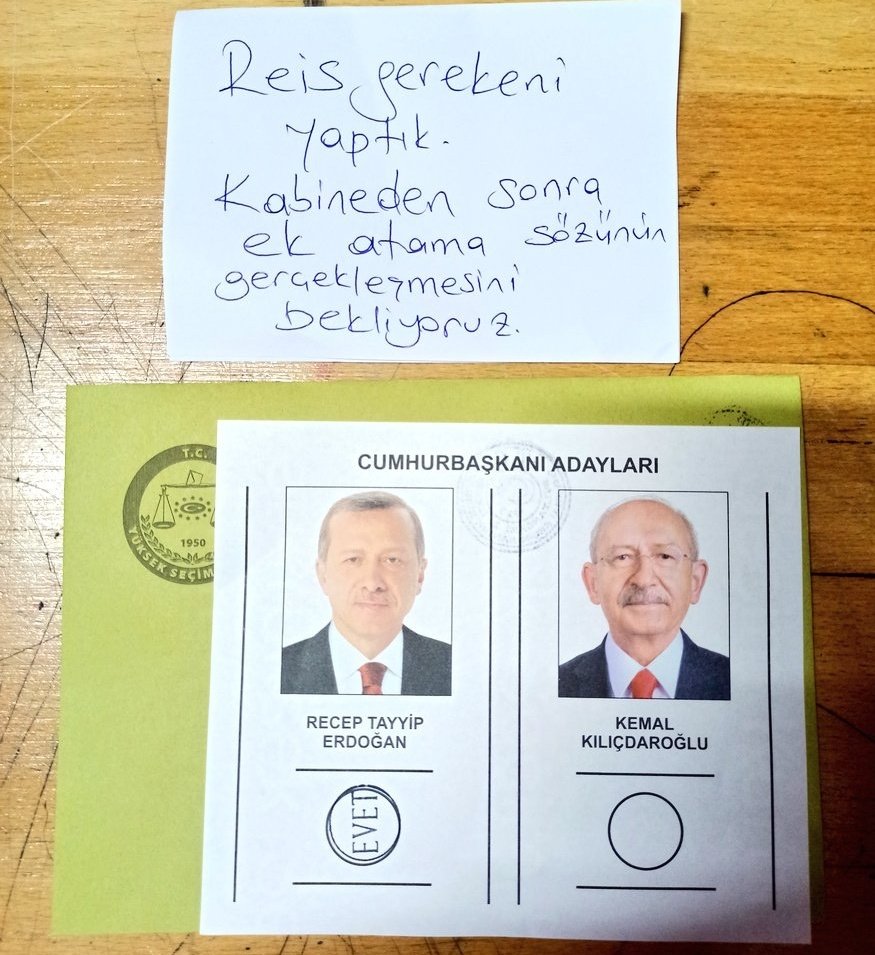 Reis gerekeni
yaptık.
Kabineden sonra
ek atama sözünün
gerçekleşmesini
bekliyoruz.
T.C.
1950
YÜKSEK SEÇİM
CUMHURBAŞKANI ADAYLARI
RECEP TAYYİP
ERDOĞAN
KEMAL
KILIÇDAROĞLU
EVET